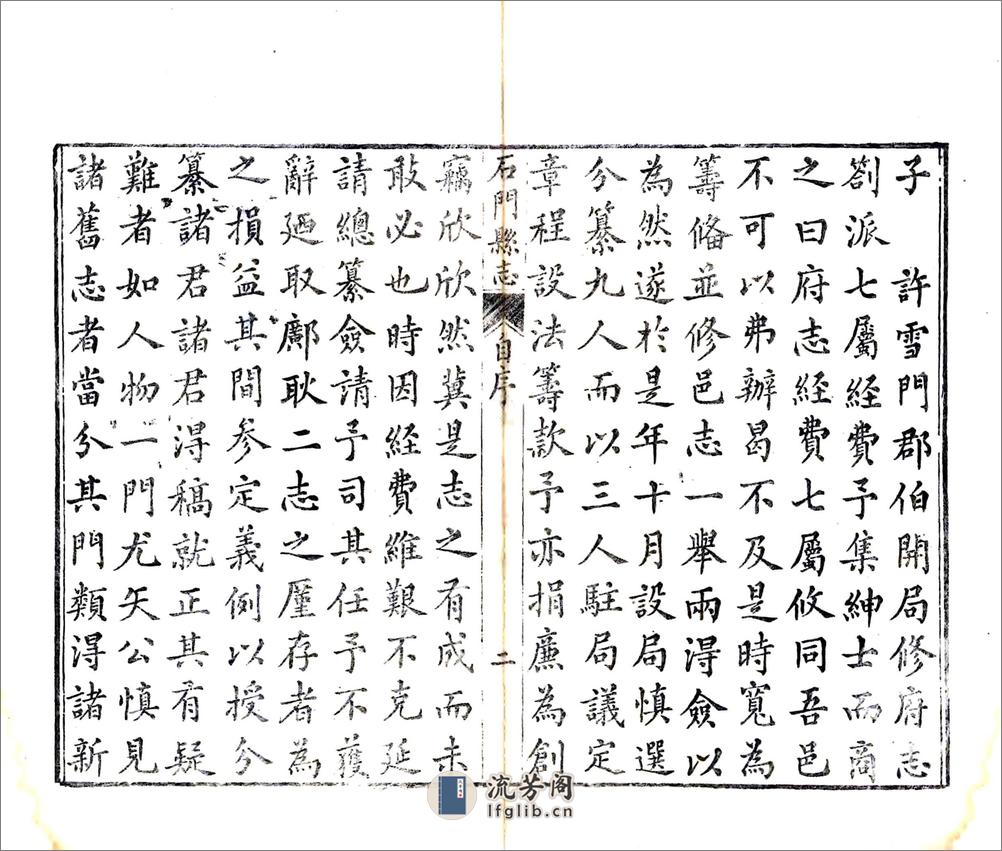 子　許雪門郡伯開局修府志
劄派七屬經費予集紳士而商
之曰府志經費七屬攸同吾邑
不可以弗辦曷不及是時寬為
籌備並修邑志一舉兩得僉以
為然遂於是年十月設局慎選
分纂九人而以三人駐局議定
章程設法籌款予亦捐廉為創
石門縣志
自序
二
竊欣欣然冀是志之有成而未
敢必也時因經費維艱不克延
請總纂僉請予司其任予不獲
辭廼取鄺耿二志之廑存者為
之損益其間參定義例以授分
纂諸君諸君得稿就正其有疑
難者如人物一門尤矢公慎見
諸舊志者當分其門類得諸新
流芳阁
lfglib.cn